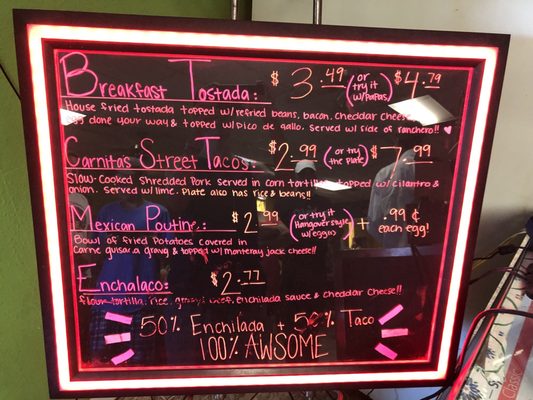 Breakfast Tostada: $3.49 (or try it w/PaPas) $4.79
House fried tostada topped w/refried beans, bacon, cheddar cheese
egg done your way & topped w/pico de gallo. Served w/ side of ranchero!!
Carnitas Street Tacos: $2.99 (or try the Plate) $7.99
Slow-Cooked Shredded Pork served in corn tortillas topped w/cilantro &
onion. Served w/lime. Plate also has rice & beans!!
Mexican Poutine: $2.99 (or try it Hangover style w/eggs) + .99¢ each egg!
Bowl of fried Potatoes covered in
Carne guisada gravy & topped w/ monteray jack cheese!!
Enchalaco: $2.77
flour tortilla, rice, ground beef, enchilada sauce & cheddar cheese!!
50% Enchilada + 50% Taco
100% AWSOME